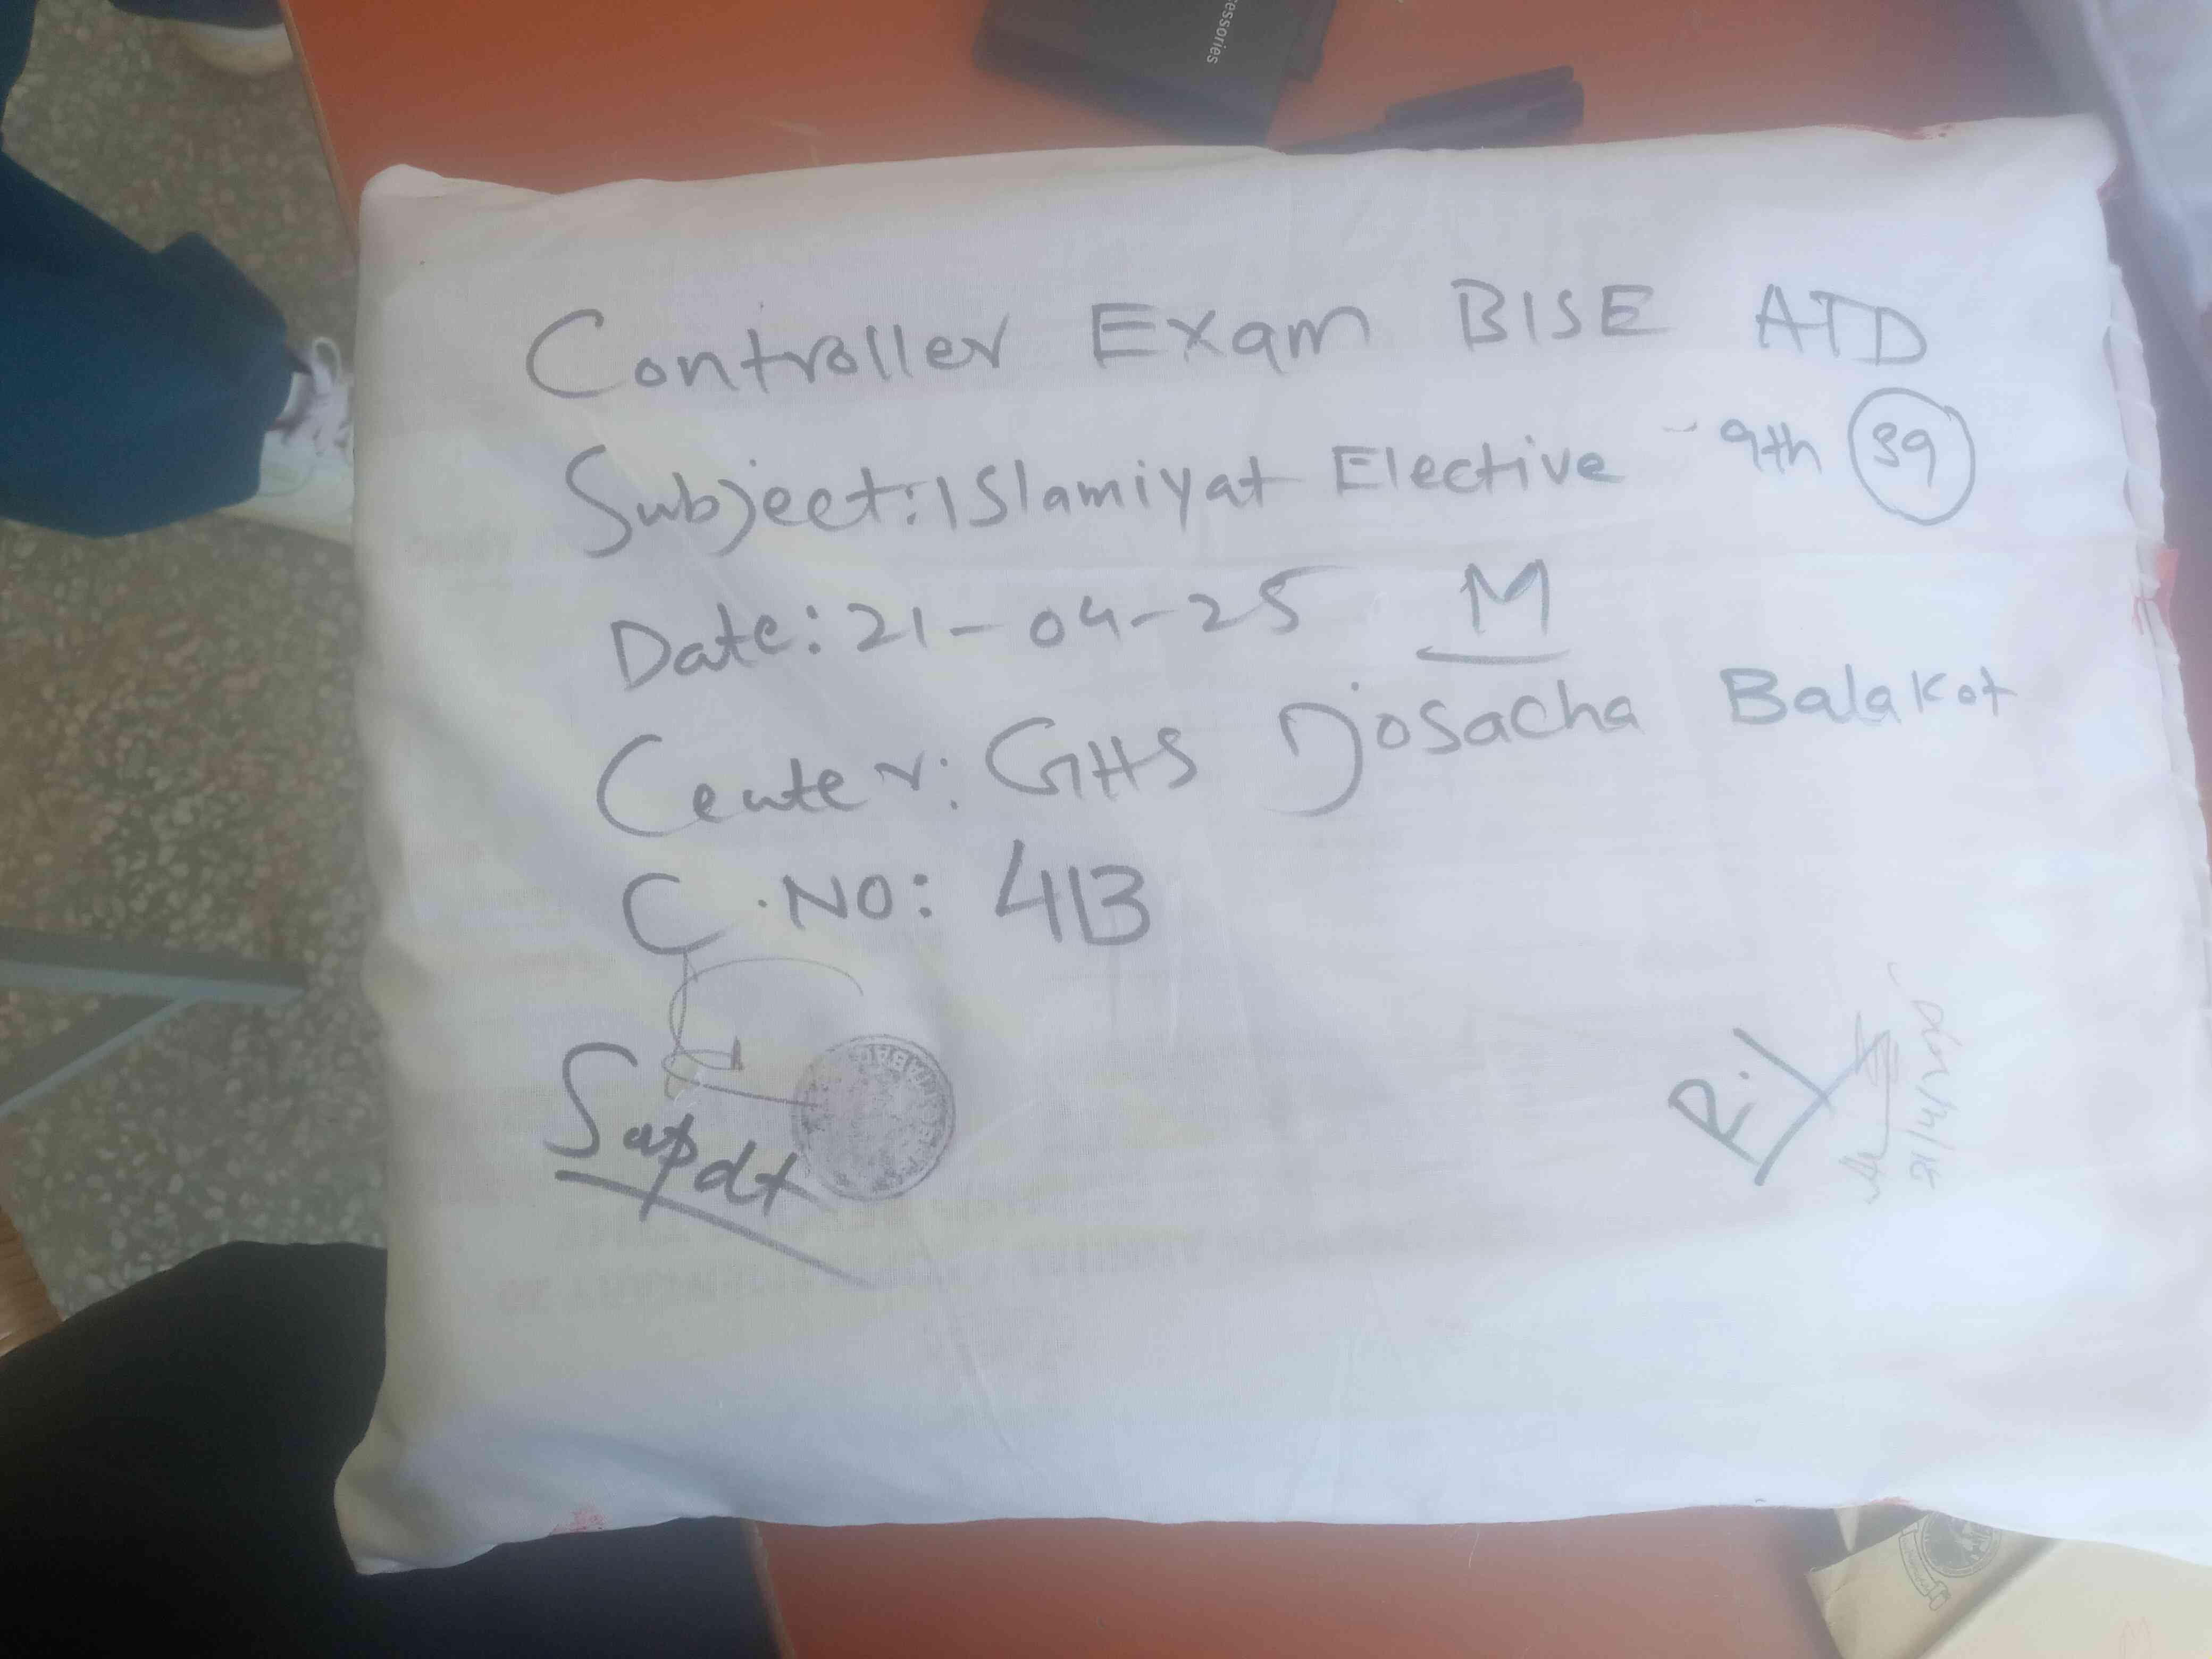 cessories
Controller Exam BISE ATD
Subject: Islamiyat Elective - 9th 39
Date: 21-04-25 M
Center: GHS Djosacha Balakot
C. No: 413
Supdt
R.I
21/4/2025